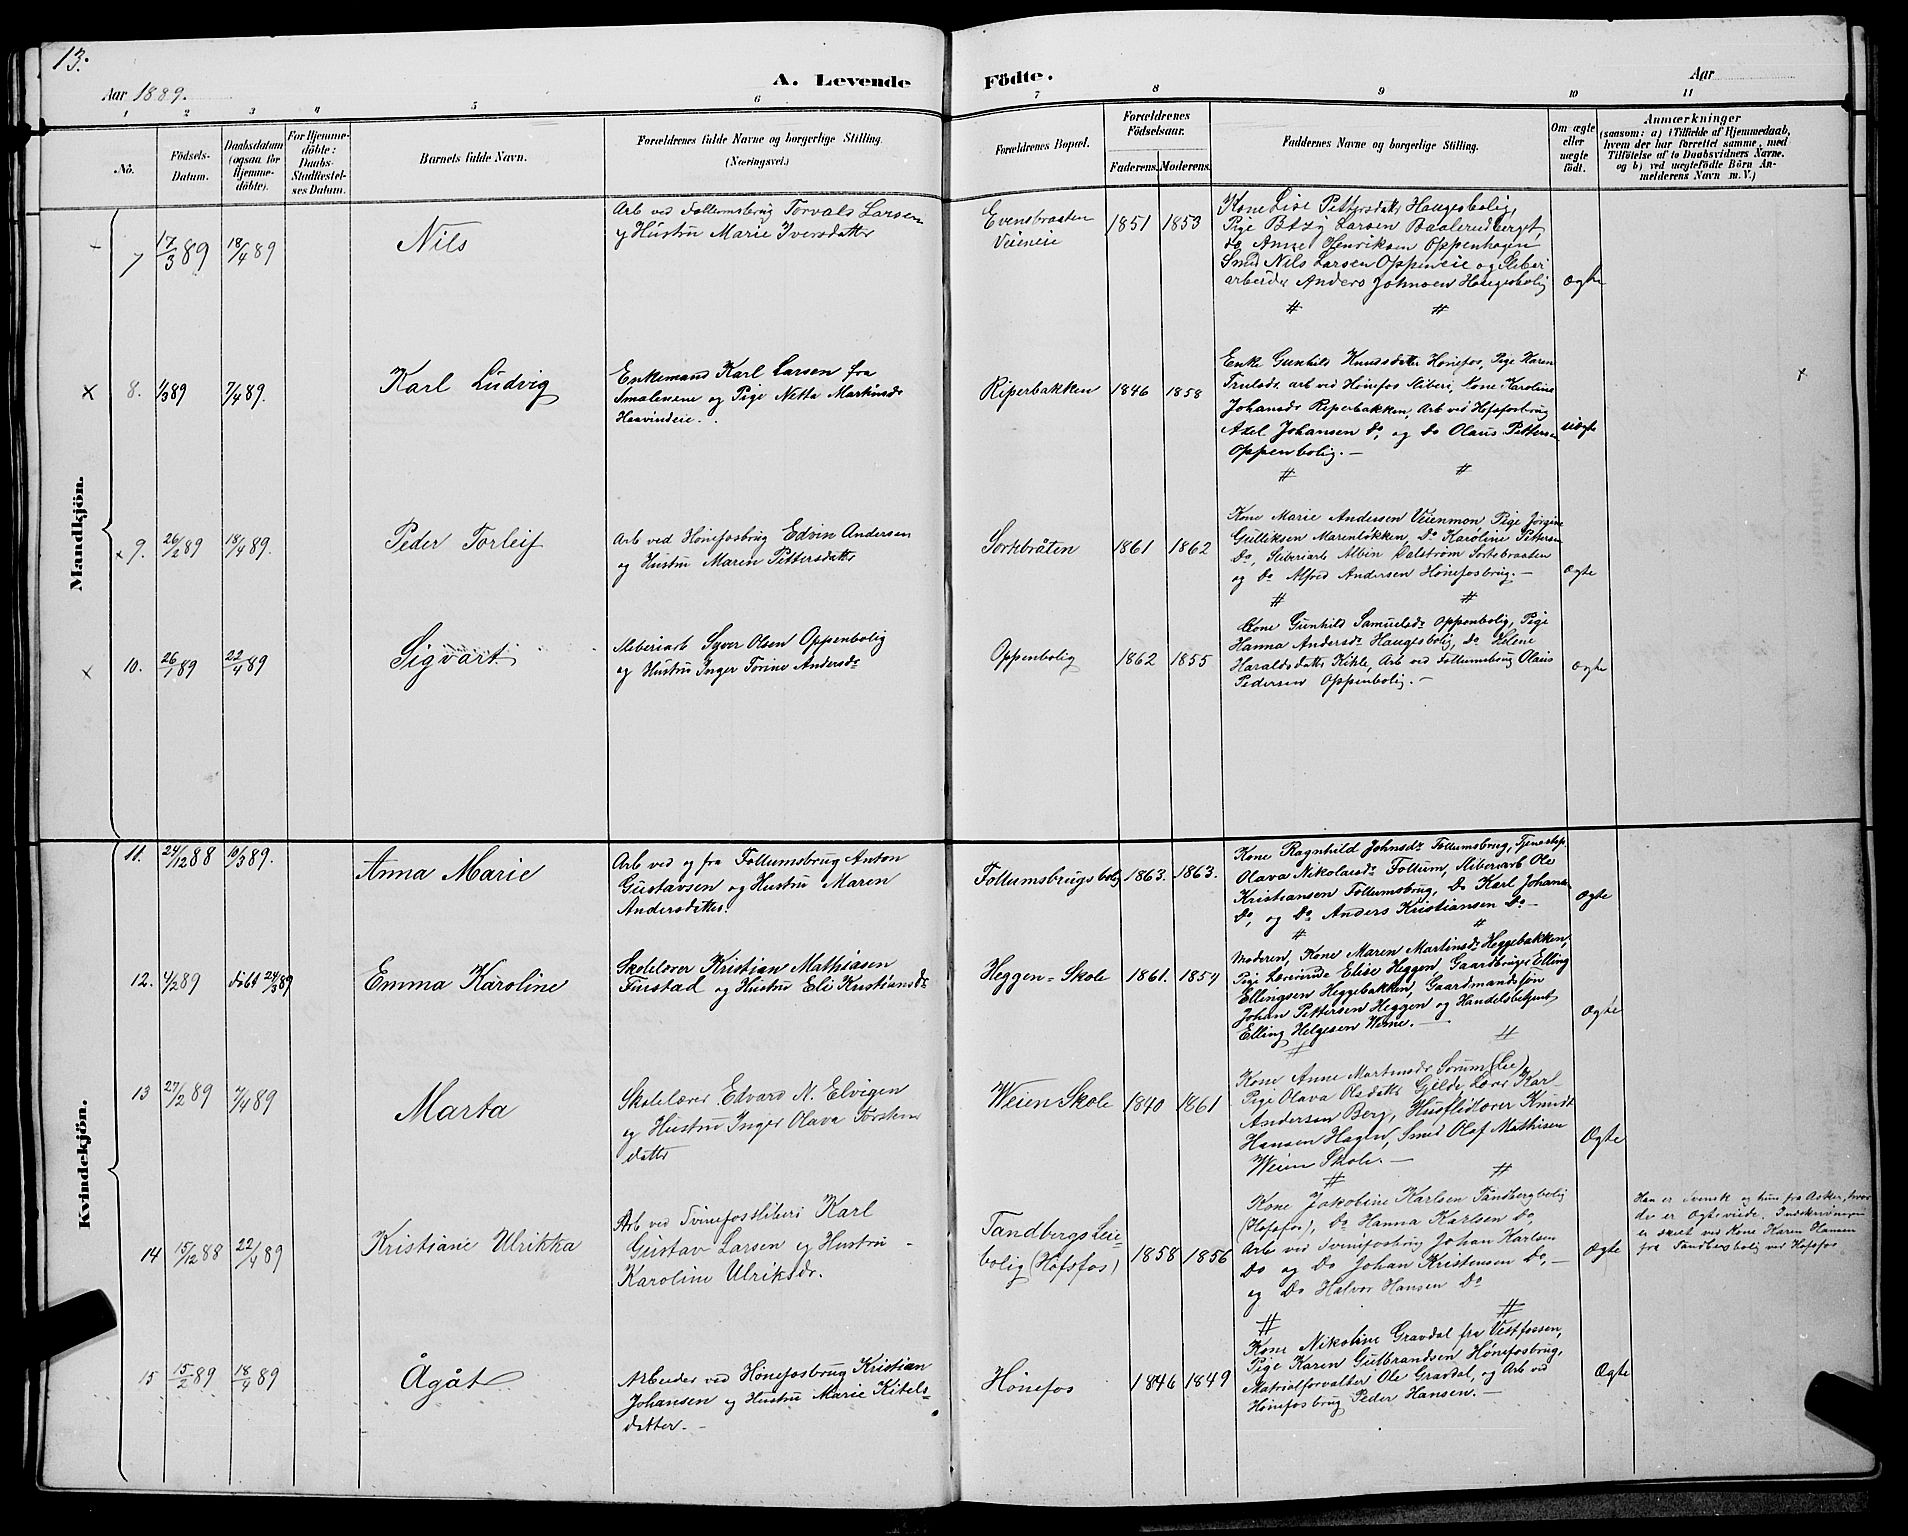 13.
Aar 1889.
A. Levende
Födte.
Aar
1
2
3
4
5
6
7
8
9
10
11
No.
Födsels-
Datum.
Daabsdatum
(ogsaa for
Hjemme-
döbte).
For Hjemme-
döbte:
Daabs-
Stadfæstel-
ses Datum.
Barnets fulde Navn.
Forældrenes fulde Navne og borgerlige Stilling.
(Næringsvei.)
Forældrenes Bopæl.
Forældrenes
Födselsaar.
Faderens.
Moderens.
Faddernes Navne og borgerlige Stilling.
Om ægte
eller
uægte
födt.
Anmærkninger
(saasom: a) i Tilfælde af Hjemmedaab,
hvem der har forrettet samme, med
Tilföielse af to Daabsvidners Navne.
og b) ved uægtefödte Börn An-
melderens Navn m. V.)
Mandkjön.
7
17/3 89
18/4 89
Nils
Arb ved Follumsbrug Torvals Larsen
og Hustru Marie Iversdatter
Evensbraaten
Veieneie
1851
1853
Kone Lise Pettersdatter Haugesbolig,
Pige Larsen Baalerudberget
do Anne Henriksen Oppenhagen
Smed Nils Larsen Oppeneie og Sliberi
arbeider Anders Johnsen Haugesbolig
Ægte
# #
x
8.
1/3 89
7/4 89.
Karl Ludvig
Enkemand Karl Larsen fra
Smalenene og Pige Netta Markusdr
Haavindeie.
Riperbakken
1846
1858
Enke Gunhild Knudsdatter Hönefos, Pige Karen
Trulsdr. arb ved Hönefos Sliberi, Kone Karoline
Johansdr Riperbakken, Arb ved Hofsfosbrug
Axel Johansen Do, og Do Olaus Pettersen
Oppenbolig. –
uægte
x
# #
x
9.
26/2 89
18/4 89.
Peder Torleif
Arb ved Hönefosbrug Edvin Andersen
og Hustru Maren Pettersdatter
Sortebråten
1861
1862
Kone Marie Andersen Veienmon, Pige Jörgine
Gulliksen Marenløkken, Do Karoline Pettersen
Do, Sliberiarb Albin Dalström Sortebraaten
og Do Alfred Andersen Hönefosbrug. –
Ægte
# #
x
10.
26/1 89
22/4 89
Sigvart
Sliberiarb Syver Olsen Oppenbolig
og Hustru Inger Torine Andersdr
Oppenbolig
1862
1855
Kone Gunhild Samuelsdr Oppenbolig, Pige
Hanna Andersdr Haugesbolig, do Helene
Haraldsdatter Kihle, Arb ved Follumsbrug Olaus
Pedersen Oppenbolig. –
Ægte
Kvindekjön.
11.
24/12 88
10/3 89.
Anna Marie
Arb ved og fra Follumsbrug Anton
Gustavsen og Hustru Maren
Andersdatter.
Follumsbrugs bolig
1863.
1863.
Kone Ragnhild Johnsdr Follumsbrug, Tjenestep
Olava Nikolaisdr Follum, Sliberarb Ole
Kristiansen Follumsbrug, Do Karl Johansen
Do, og Do Anders Kristiansen Do –
Ægte
# #
12.
4/2 89
döbt 24/3 89
Emma Karoline
Skolelærer Kristian Mathiasen
Finstad og Hustru Eli Kristiansdr
Heggen = Skole
1861.
1854
Moderen, Kone Maren Martinsdr Heggebakken,
Pige Lærerinde Elise Heggen, Gaardbruger Elling
Ellingsen Heggebakken, Gaardmandssön
Johan Pettersen Heggen og Handelsbetjent
Elling Helgesen Weme. –
Ægte
# #
13
27/2 89
7/4 89
Marta
Skolelærer Edvard N. Elvigen
og Hustru Inger Olava Torstens
datter
Weien Skole
1840
1861
Kone Anne Martinsdr Sörum (Eie)
Pige Olava Olsdatter Gilde, Lærer Karl
Andersen Berg, Husflidlærer Knudt
Hansen Hagen, Smed Olaf Mathisen
Weien Skole. –
Ægte
# #
14
15/12 88
22/4 89
Kristiane Ulrikka
Arb ved Tvinefossliberi Karl
Gustav Larsen og Hustru –
Karoline Ulriksdr.
Tandbergs Leie=
bolig (Hofsfos)
1858
1856
Kone Jakobine Karlsen Tandbergbolig
(Hofsfos), Do Hanna Karlsen Do,
Arb ved Tvinefosbrug Johan Karlsen
Do og Do Johan Kristensen Do, –
og Do Halvor Hansen Do
Ægte
Han er Svensk og hun fra Asker, hvor
de er Ogteviede. Indskrivningen
er skeet ved Kone Karen Hansen
fra Tandbergbolig ved Hofsfos
# #
15
15/2 89
18/4 89
Ågåt
Arbeider ved Hönefosbrug Kristian
Johansen og Hustru Marie Kitels=
datter. –
Hönefos
1846
1849
Kone Nikoline Gravdal fra Vestfossen,
Pige Karen Gulbrandsen Hönefosbrug,
Matrialforvalter Ole Gravdal, og Arb ved
Hönefosbrug Peder Hansen. –
Ægte